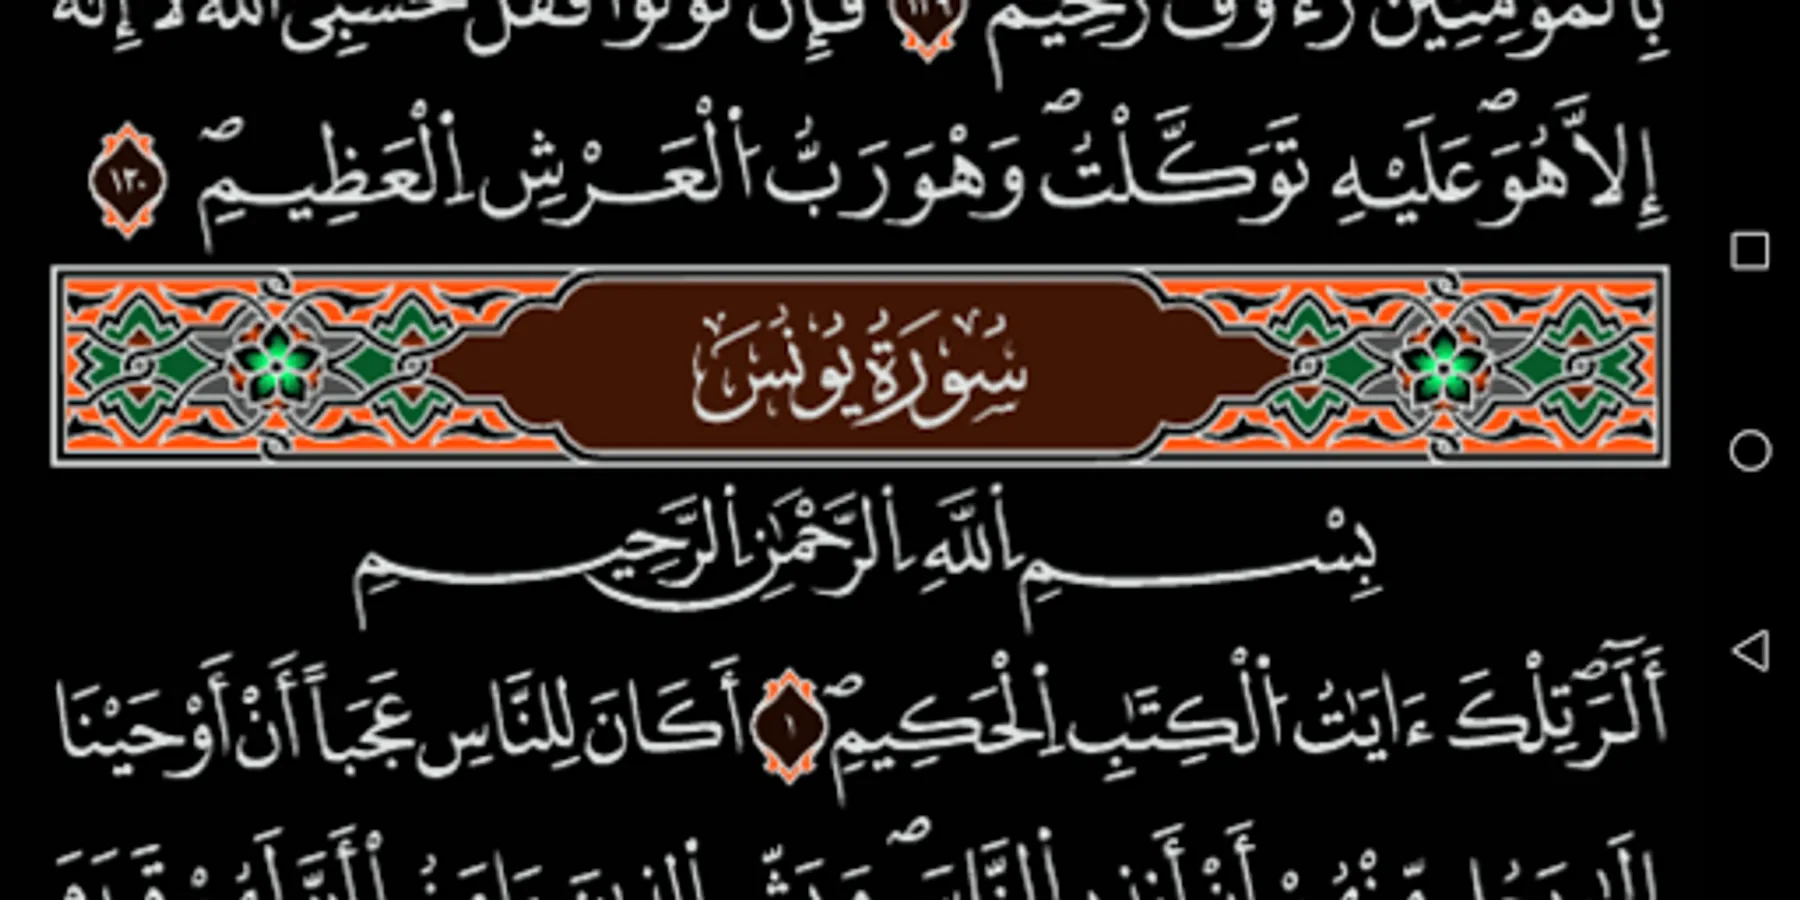 بِالْمُومِنِينَ رَءُوفٌ رَّحِيمٌ ١٢٩ فَإِن تَوَلَّوْا فَقُلْ حَسْبِيَ اَللَّهُ لَا إِلَٰهَ
إِلَّا هُوَۖ عَلَيْهِ تَوَكَّلْتُۖ وَهْوَ رَبُّ اُلْعَرْشِ اِلْعَظِيمِۖ ١٣٠
سُورَةُ يُونُسَ
بِسْمِ اِللَّهِ اِلرَّحْمَٰنِ اِلرَّحِيمِ
أَلَٓرَۖ تِلْكَ ءَايَٰتُ اُلْكِتَٰبِ اِلْحَكِيمِۖ ١ أَكَانَ لِلنَّاسِ عَجَباً أَنْ أَوْحَيْنَا